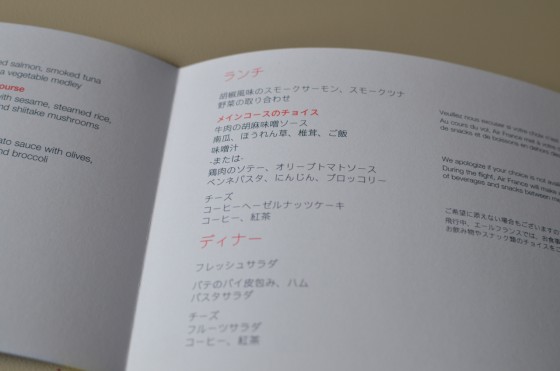 ed salmon, smoked tuna
a vegetable medley
ourse
with sesame, steamed rice,
and shiitake mushrooms
ato sauce with olives,
nd broccoli
ランチ
胡椒風味のスモークサーモン、スモークツナ
野菜の取り合わせ
メインコースのチョイス
牛肉の胡麻味噌ソース
南瓜、ほうれん草、椎茸、ご飯
味噌汁
-または-
鶏肉のソテー、オリーブトマトソース
ペンネパスタ、にんじん、ブロッコリー
チーズ
コーヒーヘーゼルナッツケーキ
コーヒー、紅茶
ディナー
フレッシュサラダ
パテのパイ皮包み、ハム
パスタサラダ
チーズ
フルーツサラダ
コーヒー、紅茶
Veuillez nous excuser si votre choix
Au cours du vol, Air France
de snacks et de boissons en
We apologize if your choice is not
During the flight, Air France will make
of beverages and snacks between
ご希望に添えない場合もございますの
飛行中、エールフランスでは、お食事
お飲み物やスナック類のチョイスをご